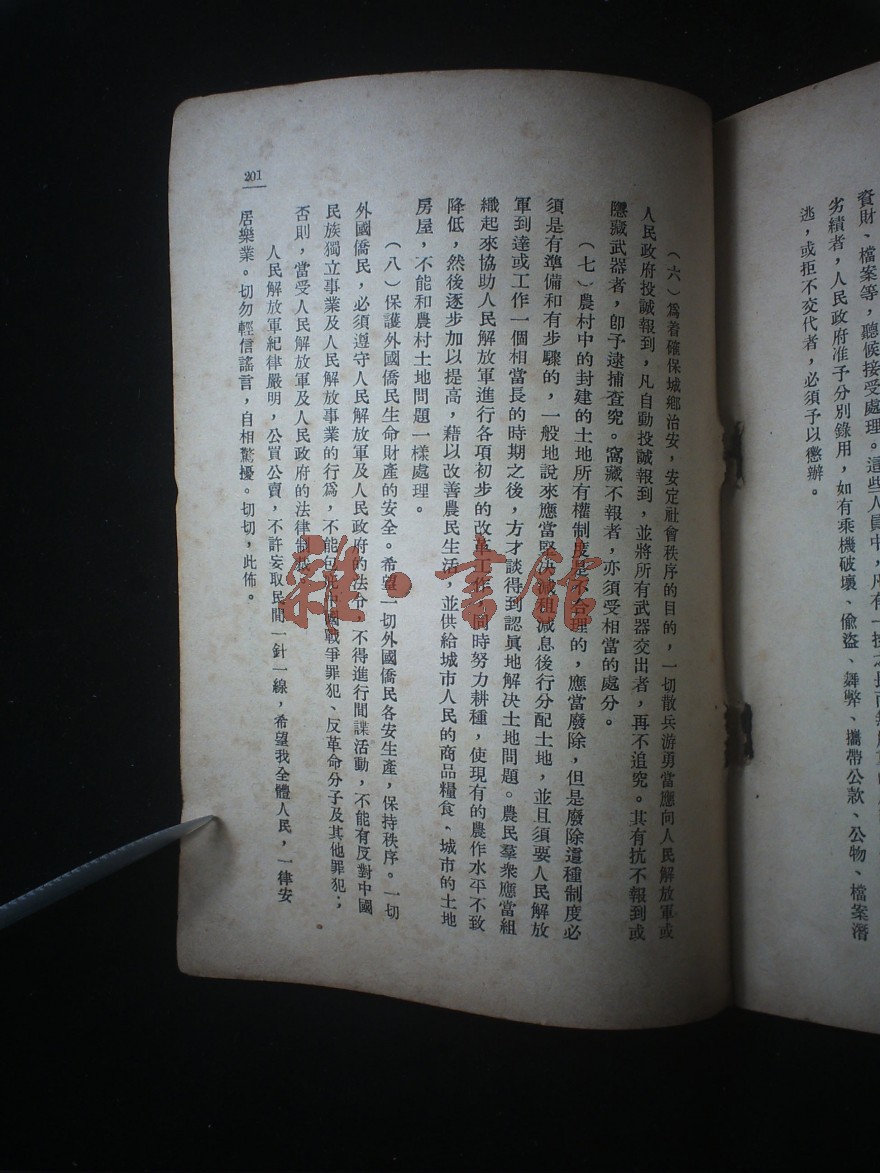 資財、檔案等，聽候接受處理。這些人員中，凡有一技之長而無
劣績者，人民政府准予分別錄用，如有乘機破壞、偷盜、舞弊、攜帶公款、公物、檔案潛
逃，或拒不交代者，必須予以懲辦。
（六）爲着確保城鄉治安，安定社會秩序的目的，一切散兵游勇當應向人民解放軍或
人民政府投誠報到，凡自動投誠報到，並將所有武器交出者，再不追究。其有抗不報到或
隱藏武器者，卽予逮捕查究。窩藏不報者，亦須受相當的處分。
（七）農村中的封建的土地所有權制度是不合理的，應當廢除，但是廢除這種制度必
須是有準備和有步驟的，一般地說來應當堅决減租減息後行分配土地，並且須要人民解放
軍到達或工作一個相當長的時期之後，方才談得到認眞地解决土地問題。農民羣衆應當組
織起來協助人民解放軍進行各項初步的改革工作，同時努力耕種，使現有的農作水平不致
降低，然後逐步加以提高，藉以改善農民生活，並供給城市人民的商品糧食、城市的土地
房屋，不能和農村土地問題一樣處理。
（八）保護外國僑民生命財產的安全。希望一切外國僑民各安生產，保持秩序。一切
外國僑民，必須遵守人民解放軍及人民政府的法令，不得進行間諜活動，不能有反對中國
民族獨立事業及人民解放事業的行爲，不能包庇中國戰爭罪犯、反革命分子及其他罪犯；
否則，當受人民解放軍及人民政府的法律制裁。
人民解放軍紀律嚴明，公買公賣，不許妄取民間一針一線，希望我全體人民，一律安
居樂業。切勿輕信謠言，自相驚擾。切切，此佈。
201
雜·書館